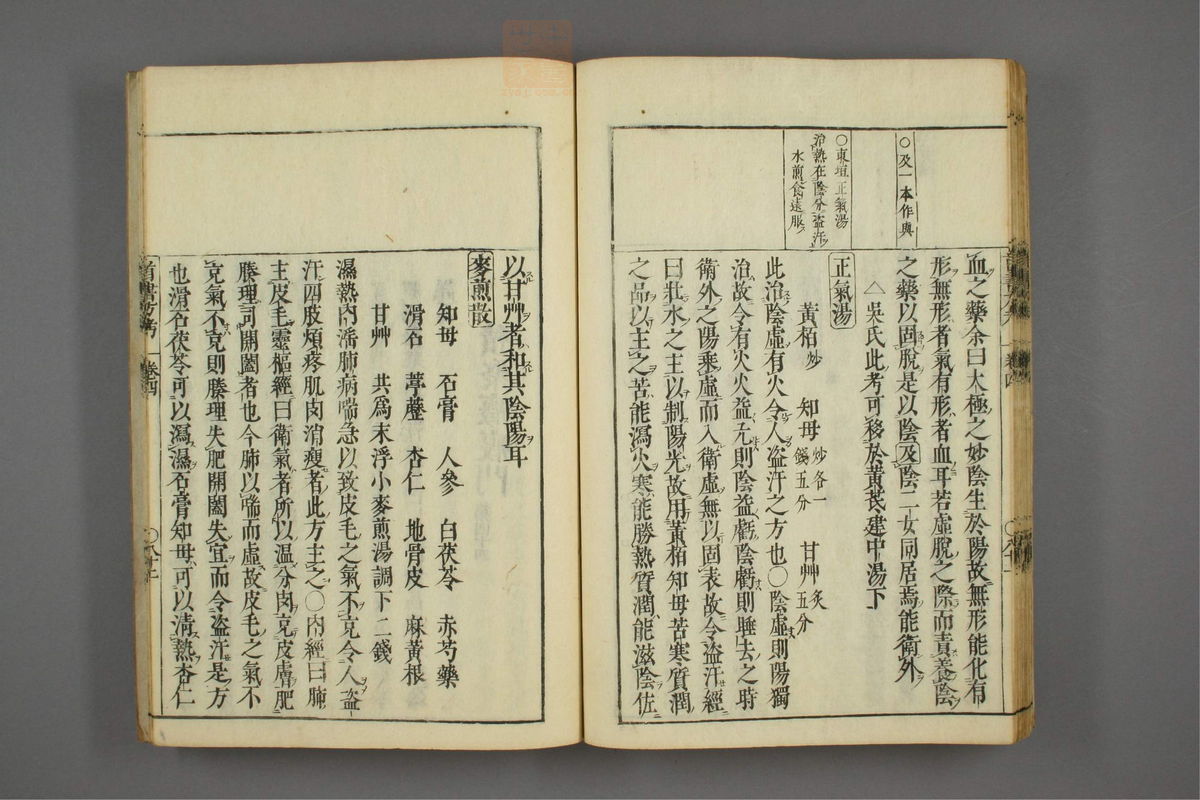 ○及一本作與
○東垣正氣湯
治熱在陰分盜汗
水煎食遠服
血之藥余曰太極之妙陰生於陽故無形能化有
形無形者氣有形者血耳若虛脫之際而責養陰
之藥以固脫是以陰及陰二女同居焉能衛外
△吳氏此考可移於黃芪建中湯下
正氣湯
黃柏炒 知母炒各一錢五分 甘艸炙五分
此治陰虛有火令人盜汗之方也○陰虛則陽獨
治故令有火火益亢則陰益虧陰虧則睡去之時
衛外之陽乘虛而入衛虛無以固表故令盜汗經
曰壯水之主以制陽光故用黃柏知母苦寒質潤
之品以主之苦能瀉火寒能勝熱質潤能滋陰佐
以甘艸者和其陰陽耳
麥煎散
知母 石膏 人參 白茯苓 赤芍藥
滑石 葶藶 杏仁 地骨皮 麻黃根
甘艸 共爲末浮小麥煎湯調下二錢
濕熱內潘肺病喘急以致皮毛之氣不克令人盜
汗四肢煩疼肌肉消瘦者此方主之○內經曰肺
主皮毛靈樞經曰衛氣者所以溫分肉克皮膚肥
腠理司開闔者也今肺以喘而虛故皮毛之氣不
克氣不克則腠理失肥開闔失宜而令盜汗是方
也滑石茯苓可以瀉濕石膏知母可以清熱杏仁
卷四